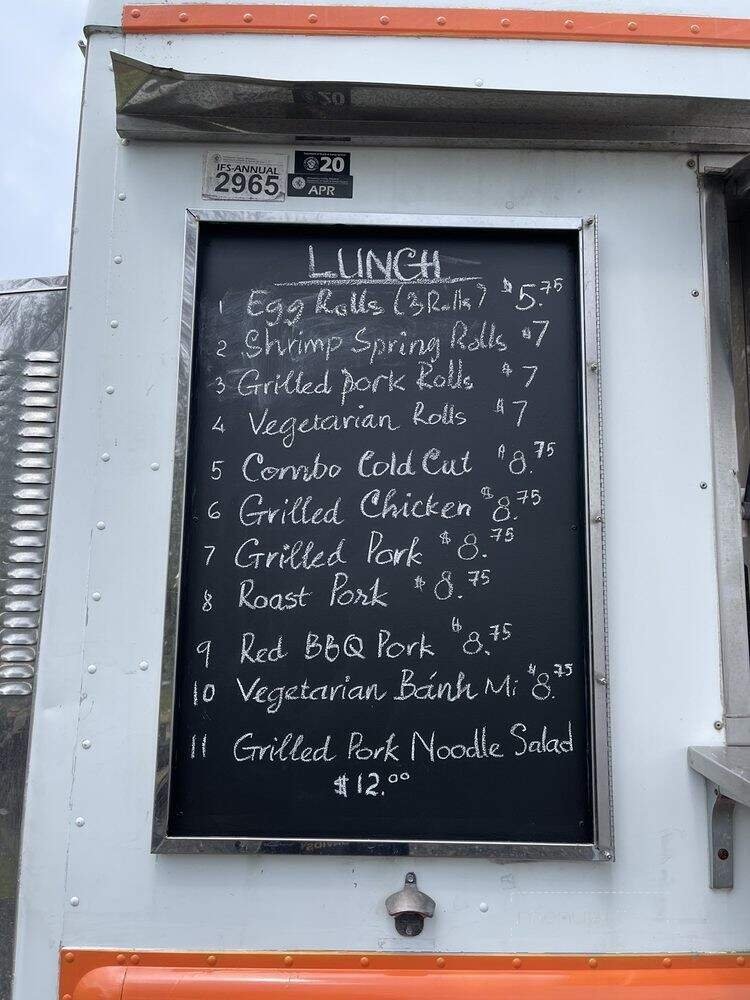 IFS-ANNUAL
2965
20
APR
LUNCH
1 Egg Rolls (3 Rolls) $5.75
2 Shrimp Spring Rolls $7
3 Grilled pork Rolls $7
4 Vegetarian Rolls $7
5 Combo Cold Cut $8.75
6 Grilled Chicken $8.75
7 Grilled Pork $8.75
8 Roast Pork $8.75
9 Red BBQ Pork $8.75
10 Vegetarian Bánh Mi $8.75
11 Grilled Pork Noodle Salad
$12.00